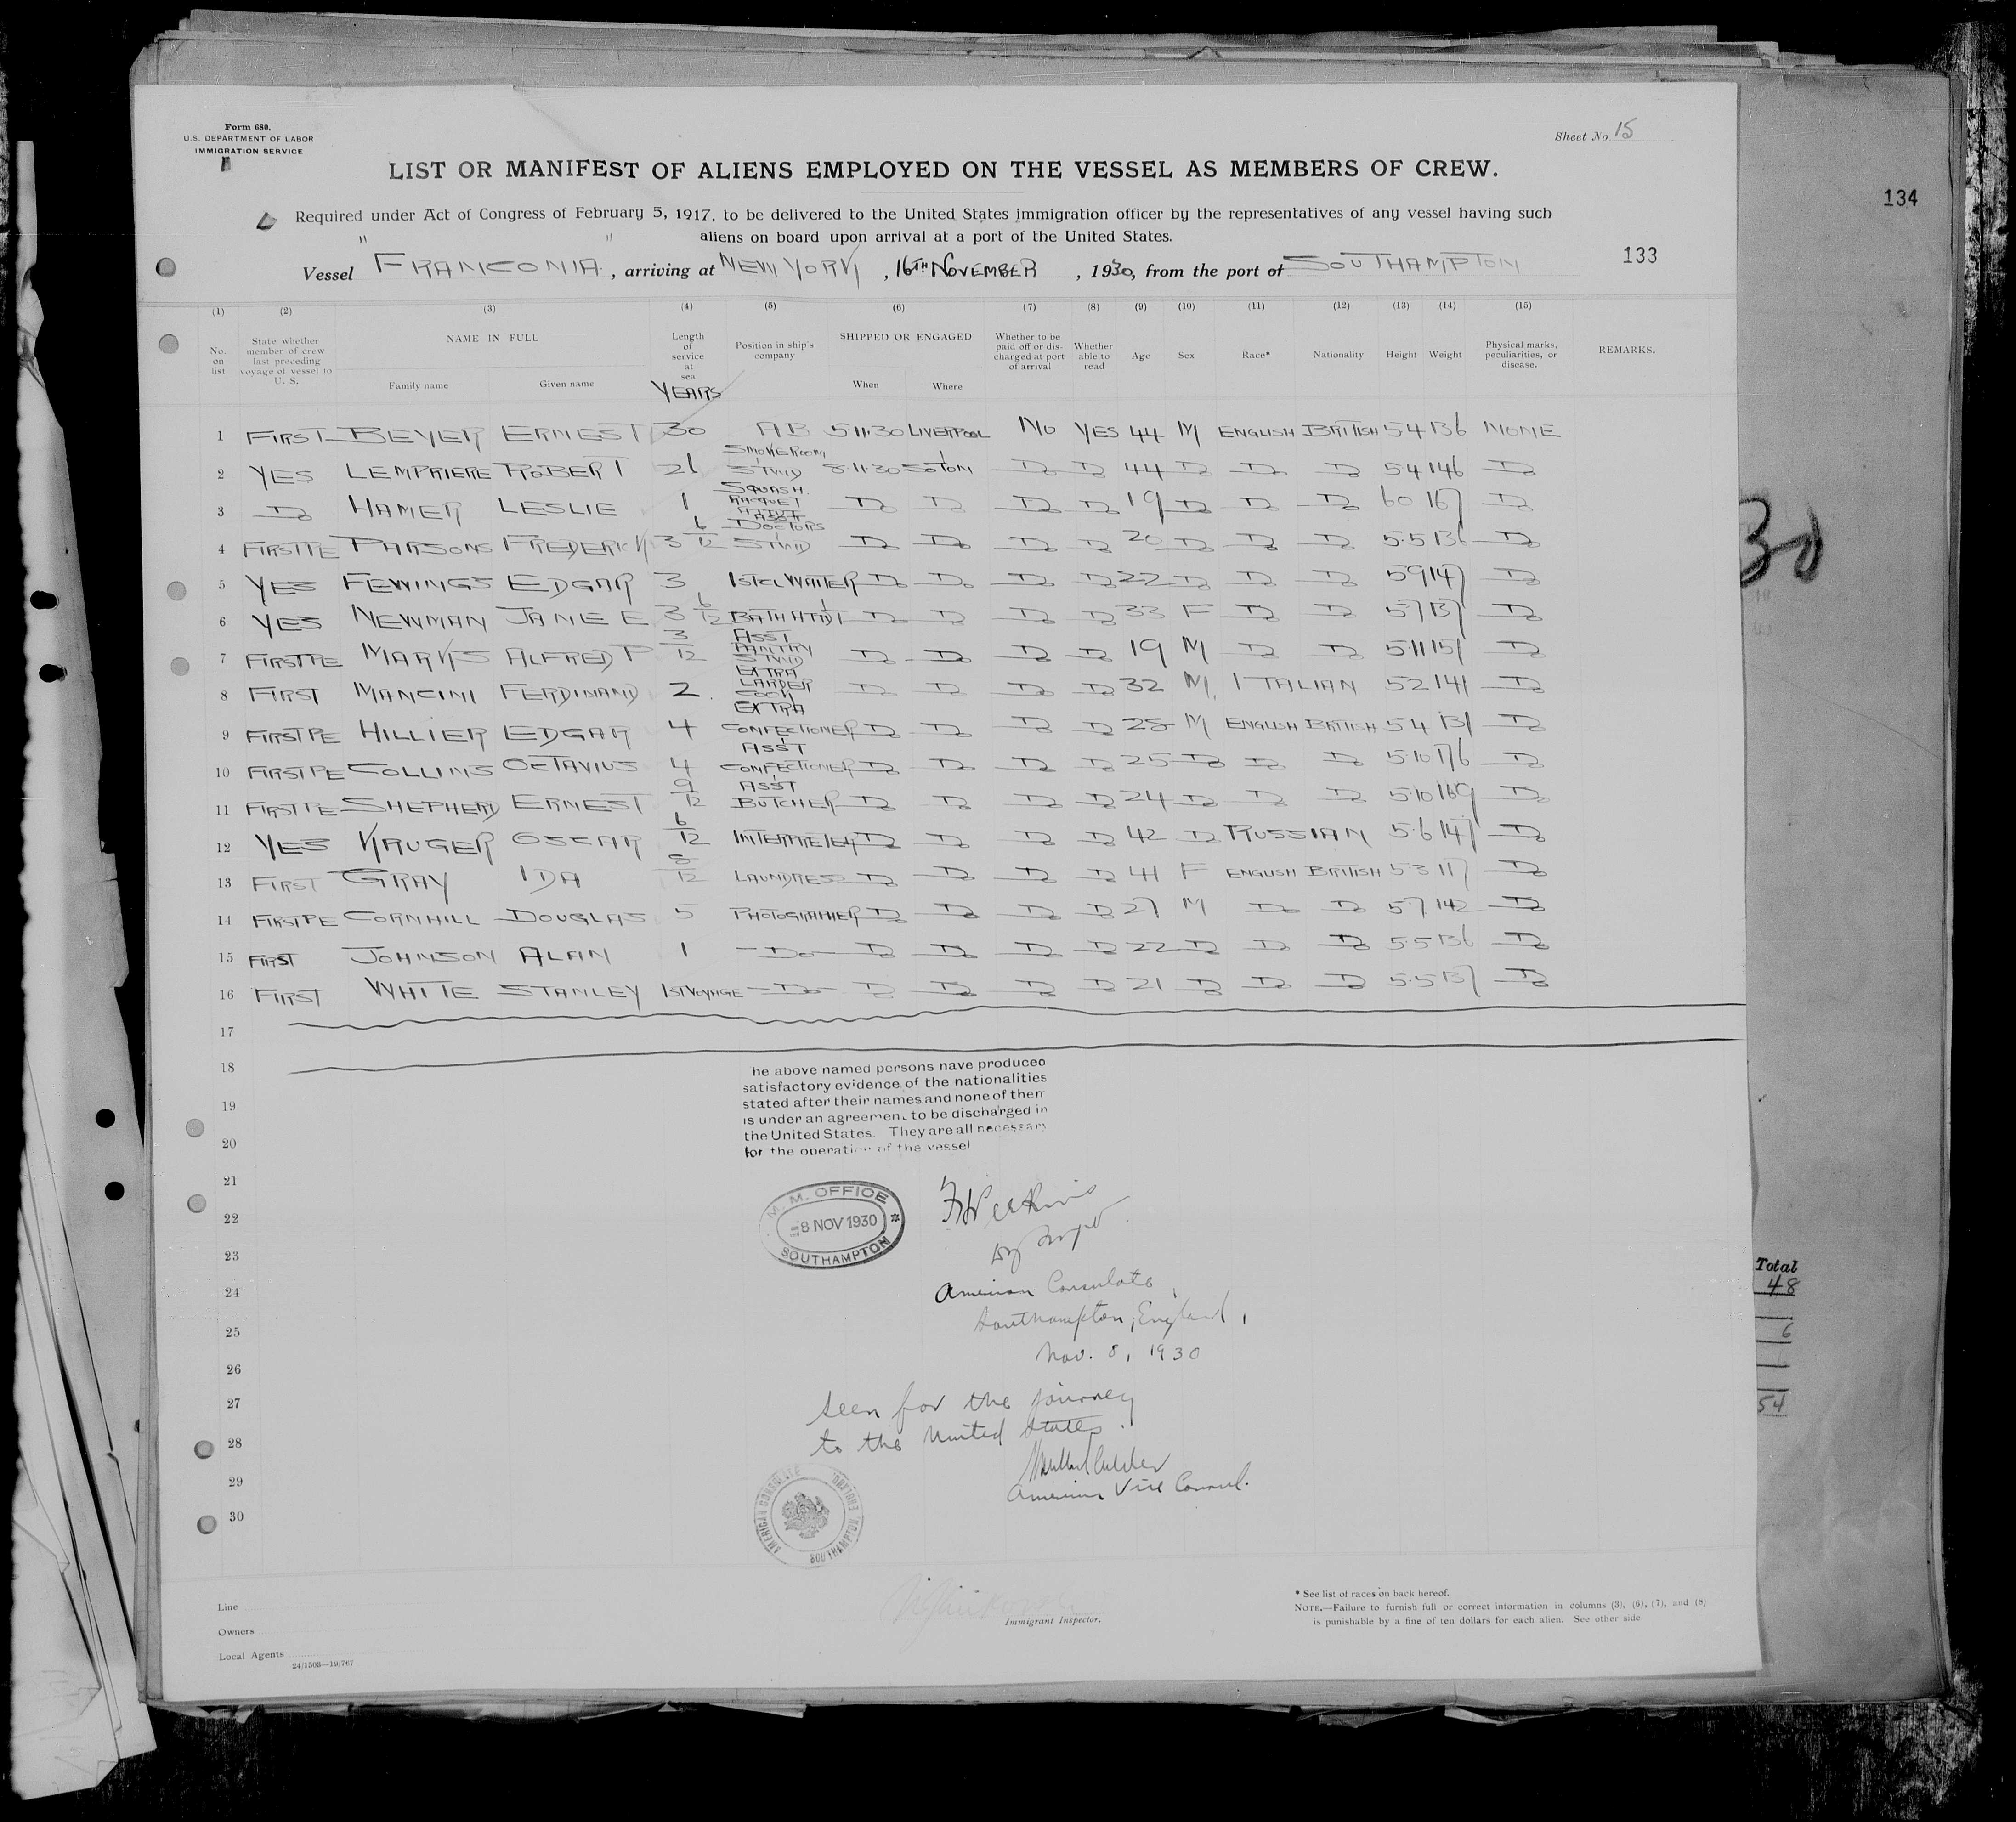 Form 680.
U.S. DEPARTMENT OF LABOR
IMMIGRATION SERVICE
Sheet No. 15
LIST OR MANIFEST OF ALIENS EMPLOYED ON THE VESSEL AS MEMBERS OF CREW.
134
Required under Act of Congress of February 5, 1917, to be delivered to the United States immigration officer by the representatives of any vessel having such
aliens on board upon arrival at a port of the United States.
133
Vessel "FRANCONIA", arriving at NEW YORK, 16TH NOVEMBER, 1930, from the port of SOUTHAMPTON
(1) (2) (3) (4) (5) (6) (7) (8) (9) (10) (11) (12) (13) (14) (15)
No. on list
State whether member of crew last preceding voyage of vessel to U. S.
NAME IN FULL
Family name Given name
Length of service at sea
YEARS
Position in ship's company
SHIPPED OR ENGAGED
When Where
Whether to be paid off or discharged at port of arrival
Whether able to read
Age Sex Race* Nationality Height Weight
Physical marks, peculiarities, or disease.
REMARKS.
1 FIRST BEYER ERNEST 30 AB 5.11.30 LIVERPOOL NO YES 44 M ENGLISH BRITISH 5 4 136 NONE
2 YES LEMPRIERE ROBERT 21 SMOKEROOM STWD 8.11.30 SOTON Do Do 44 Do Do Do 5 4 146 Do
3 Do HAMER LESLIE 1 SQUASH RACQUET Do Do Do Do 19 Do Do Do 6 0 167 Do
4 FIRST PE PARSONS FREDERICK 3 6/12 DOCTORS STWD Do Do Do Do 20 Do Do Do 5.5 136 Do
5 YES FEWINGS EDGAR 3 1ST CL WAITER Do Do Do Do 22 Do Do Do 5 9 147 Do
6 YES NEWMAN JANE E 3 6/12 BATH ATDT Do Do Do Do 33 F Do Do 5 7 137 Do
7 FIRST PE MARKS ALFRED P 3/12 ASST PANTRY STWD Do Do Do Do 19 M Do Do 5.11 151 Do
8 FIRST MANCINI FERDINAND 2 EXTRA LARDER COOK Do Do Do Do 32 M. ITALIAN 5 2 141 Do
9 FIRST PE HILLIER EDGAR 4 EXTRA CONFECTIONER Do Do Do Do 28 M ENGLISH BRITISH 5 4 131 Do
10 FIRST PE COLLINS OCTAVIUS 4 ASST CONFECTIONER Do Do Do Do 25 Do Do Do 5.10 176 Do
11 FIRST PE SHEPHERD ERNEST 9/12 ASST BUTCHER Do Do Do Do 24 Do Do Do 5.10 169 Do
12 YES KRUGER OSCAR 6/12 INTERPRETER Do Do Do Do 42 Do RUSSIAN 5.6 147 Do
13 FIRST GRAY IDA 8/12 LAUNDRESS Do Do Do Do 41 F ENGLISH BRITISH 5 3 117 Do
14 FIRST PE CORNHILL DOUGLAS 5 PHOTOGRAPHER Do Do Do Do 27 M Do Do 5.7 142 Do
15 FIRST JOHNSON ALAN 1 Do Do Do Do Do 22 Do Do Do 5.5 136 Do
16 FIRST WHITE STANLEY 1ST VOYAGE Do Do Do Do Do 21 Do Do Do 5.5 137 Do
17
18
19
20
21
22
23
24
25
26
27
28
29
30
he above named persons have produced
satisfactory evidence of the nationalities
stated after their names and none of them
is under an agreement to be discharged in
the United States. They are all necessary
for the operation of the vessel
M. M. OFFICE
8 NOV 1930
SOUTHAMPTON
American Consulate,
Southampton, England,
Nov. 8, 1930
Seen for the journey
to the United States.
American Vice Consul.
AMERICAN CONSULATE
SOUTHAMPTON, ENGLAND
Immigrant Inspector.
Line
Owners
Local Agents
24/1503—19/767
* See list of races on back hereof.
NOTE.—Failure to furnish full or correct information in columns (3), (6), (7), and (8)
is punishable by a fine of ten dollars for each alien. See other side
30
Total
48
6
54